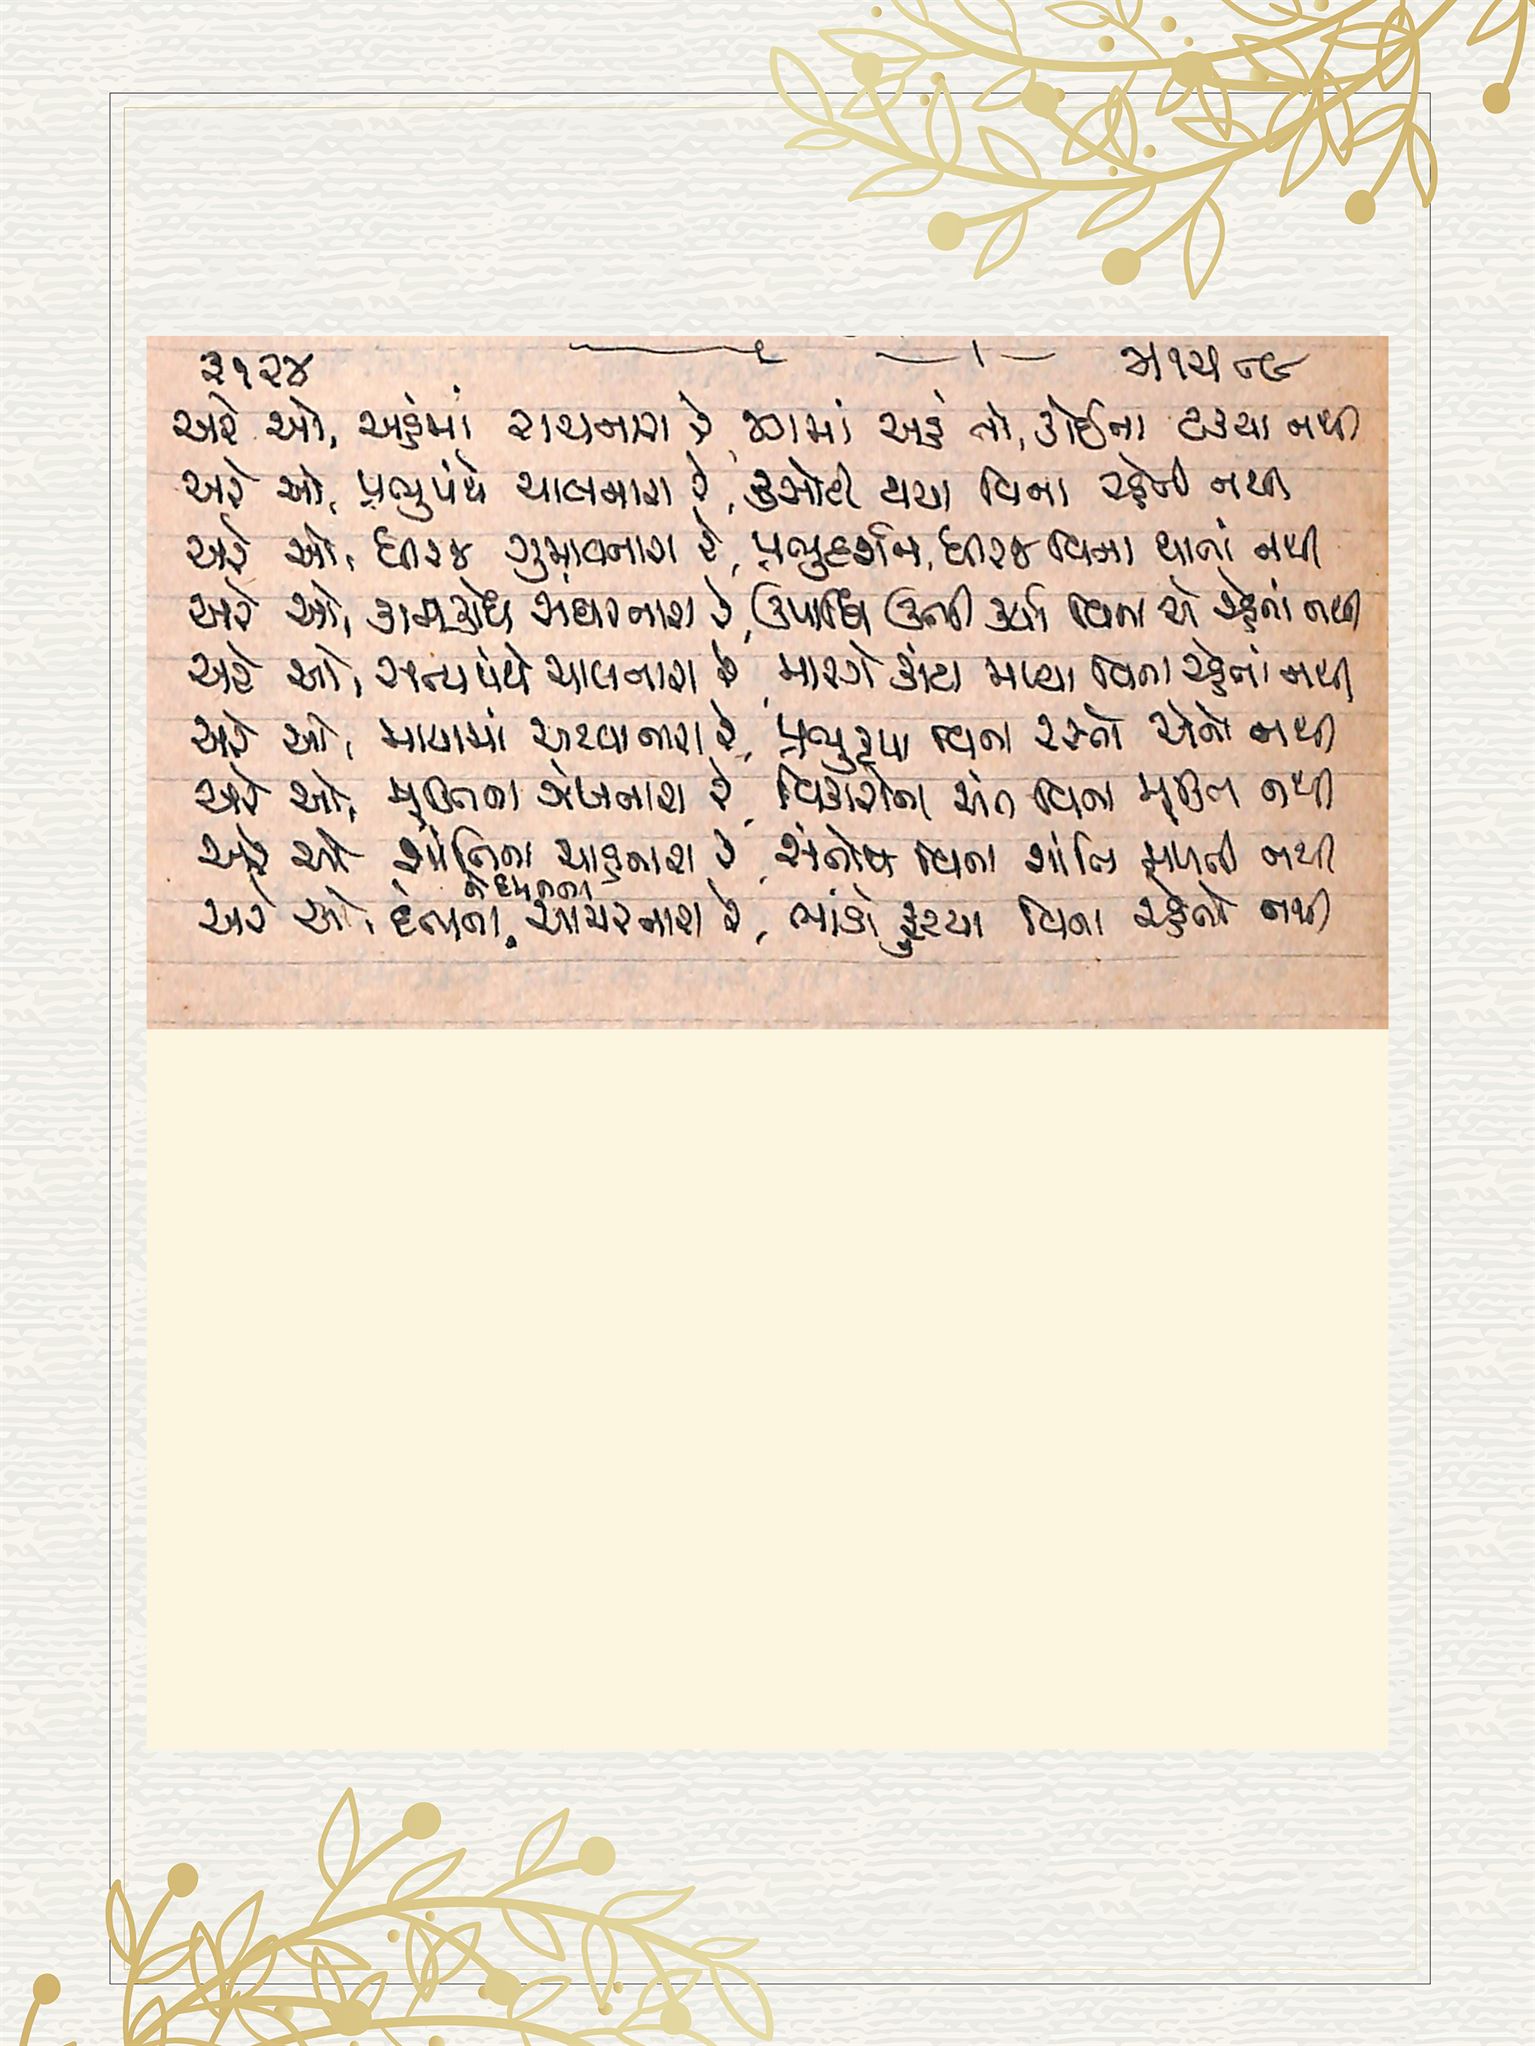 ૩૧૨૪
અરે ઓ, અહંમાં રાચનારા રે, જગમાં અહં તો, કોઈના ટક્યા નથી
અરે ઓ, પ્રભુપંથે ચાલનારા રે, કસોટી થયા વિના રહેતી નથી
અરે ઓ, ધીરજ ગુમાવનારા રે, પ્રભુદર્શન, ધીરજ વિના થાતાં નથી
અરે ઓ, કામક્રોધ સંઘરનારા રે, ઉપાધિ ઊભી કર્યા વિના એ રહેતાં નથી
અરે ઓ, સત્યપંથે ચાલનારા રે, મારગે કાંટા મળ્યા વિના રહેતાં નથી
અરે ઓ, માયામાં અટવાનારા રે, પ્રભુકૃપા વિના રસ્તો એનો નથી
અરે ઓ, મુક્તિના ઝંખનારા રે, વિકારોના અંત વિના મુક્તિ નથી
અરે ઓ શાંતિના ચાહનારા રે, સંતોષ વિના શાંતિ મળતી નથી
અરે ઓ, દંભના, આચરનારા રે, ભાંડો ફૂટયા વિના રહેતો નથી